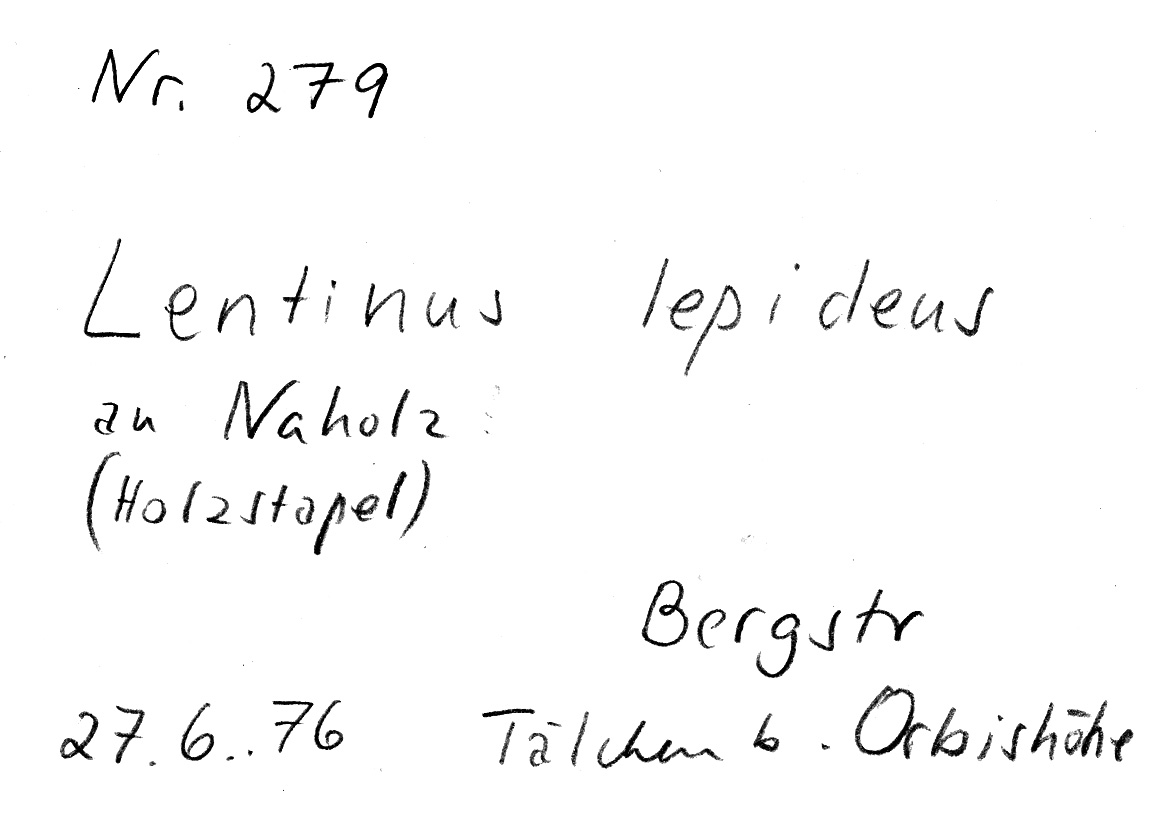 Nr. 279
Lentinus lepideus
an Naholz
(Holzstapel)
Bergstr
27.6..76 Tälchen b. Orbishöhe